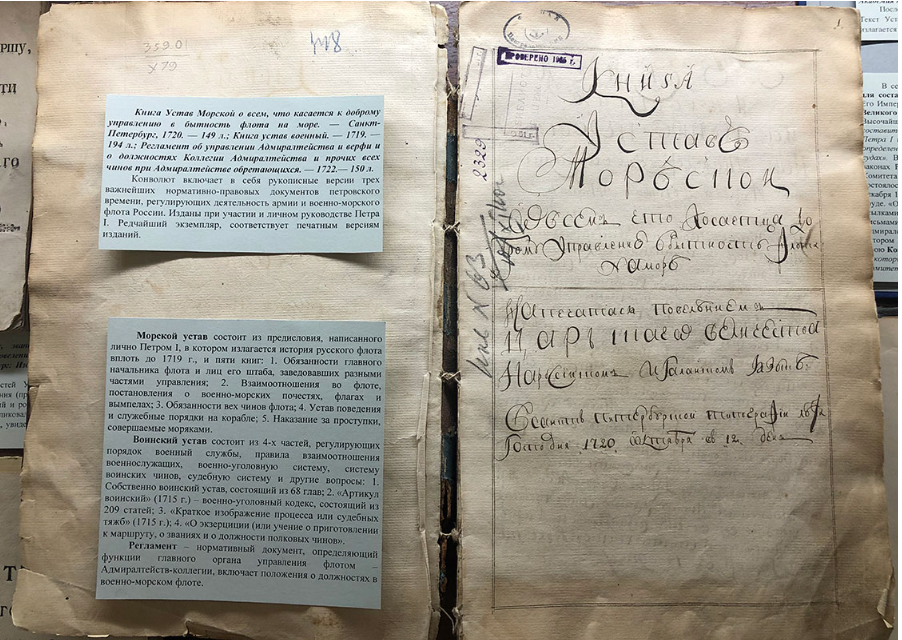 3590
х79
418
Книга Устав Морской о всем, что касается к доброму
управлению в бытность флота на море. — Санкт-
Петербург, 1720. — 149 л.; Книга устав военный. — 1719. —
194 л.; Регламент об управлении Адмиралтейства и верфи и
о должностях Коллегии Адмиралтейства и прочих всех
чинов при Адмиралтействе обретающихся. — 1722.— 150 л.
Конволют включает в себя рукописные версии трех
важнейших нормативно-правовых документов петровского
времени, регулирующих деятельность армии и военно-морского
флота России. Изданы при участии и личном руководстве Петра
I. Редчайший экземпляр, соответствует печатным версиям
изданий.
Морской устав состоит из предисловия, написанного
лично Петром I, в котором излагается история русского флота
вплоть до 1719 г., и пяти книг: 1. Обязанности главного
начальника флота и лиц его штаба, заведовавших разными
частями управления; 2. Взаимоотношения во флоте,
постановления о военно-морских почестях, флагах и
вымпелах; 3. Обязанности вех чинов флота; 4. Устав поведения
и служебные порядки на корабле; 5. Наказание за проступки,
совершаемые моряками.
Воинский устав состоит из 4-х частей, регулирующих
порядок военный службы, правила взаимоотношения
военнослужащих, военно-уголовную систему, систему
воинских чинов, судебную систему и другие вопросы: 1.
Собственно воинский устав, состоящий из 68 глав; 2. «Артикул
воинский» (1715 г.) – военно-уголовный кодекс, состоящий из
209 статей; 3. «Краткое изображение процесса или судебных
тяжб» (1715 г.); 4. «О экзерциции (или учение о приготовлении
к маршруту, о званиях и о должности полковых чинов».
Регламент – нормативный документ, определяющий
функции главного органа управления флотом –
Адмиралтейств-коллегии, включает положения о должностях в
военно-морском флоте.
1.
ПРОВЕРЕНО
2329
Книга
Уставъ
Морѣскои
О всемъ что касаетца до
управления в бытность флота
на морѣ
Напечатася повелѣниемъ
Царѣскаго величества
1720 октября въ 12 день